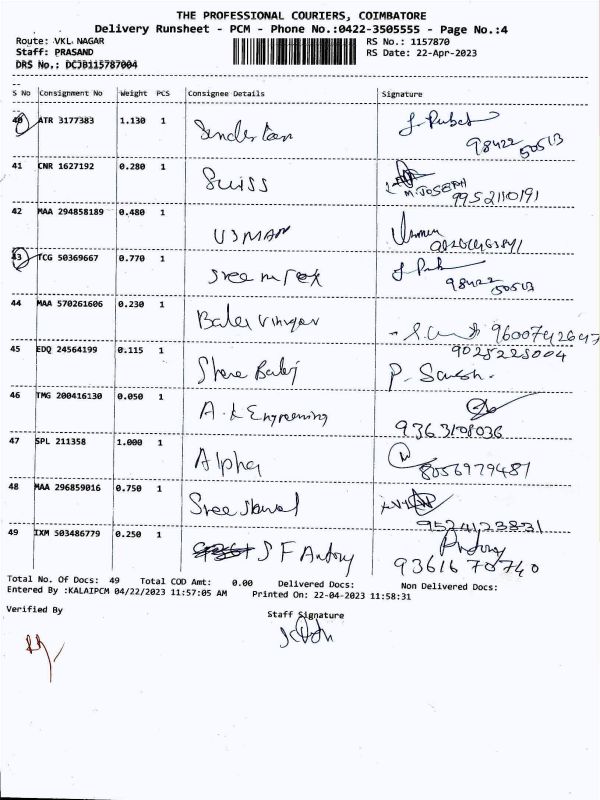 THE PROFESSIONAL COURIERS, COIMBATORE
Delivery Runsheet - PCM - Phone No.:0422-3505555 - Page No.:4
Route: VKL NAGAR RS No.: 1157870
Staff: PRASAND RS Date: 22-Apr-2023
DRS No.: DCJB115787004
S No Consignment No Weight PCS Consignee Details Signature
40 ATR 3177383 1.130 1
98422 50513
41 CNR 1627192 0.280 1 Suiss M. JOSEPH
9952110191
42 MAA 294858189 0.480 1 USMAN Usman
43 TCG 50369667 0.770 1
98422 50513
44 MAA 570261606 0.230 1
9600742647
9025225004
45 EDQ 24564199 0.115 1 P.
46 TMG 200416130 0.050 1 A.K Engineering
9363108036
47 SPL 211358 1.000 1 Alpha 8056979481
48 MAA 296859016 0.750 1 Sree
9524123831
49 IXM 503486779 0.250 1 S F Antony Antony
9361670740
Total No. Of Docs: 49 Total COD Amt: 0.00 Delivered Docs: Non Delivered Docs:
Entered By :KALAIPCM 04/22/2023 11:57:05 AM Printed On: 22-04-2023 11:58:31
Verified By Staff Signature